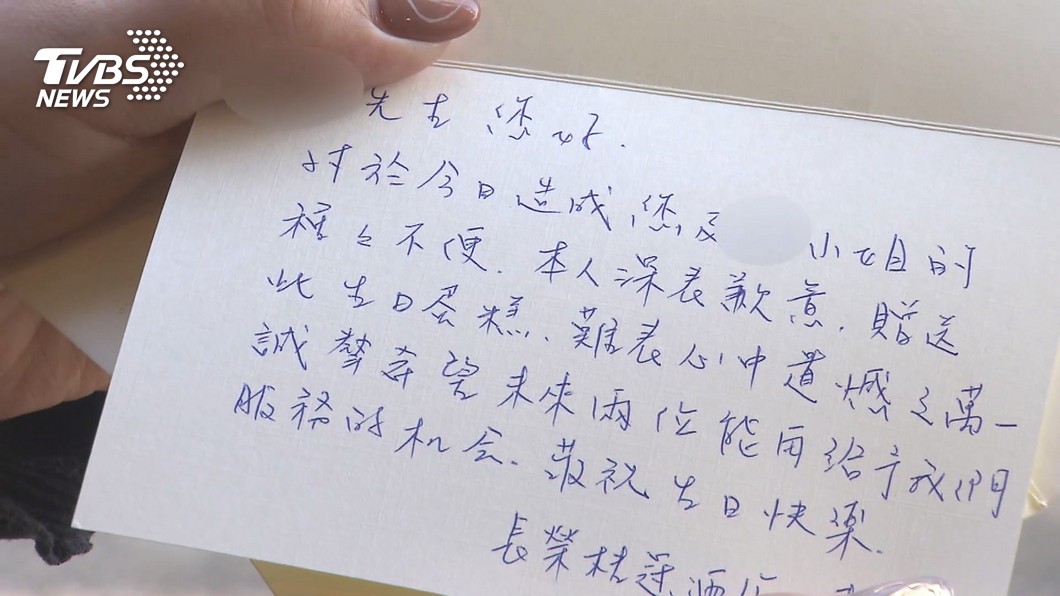 TVBS
NEWS
先生您好.
對於今日造成您及 小姐的
種々不便. 本人深表歉意. 贈送
此生日蛋糕、難表心中遺憾之萬一
誠摯希望未來兩位能再給予我們
服務的机会. 敬祝 生日快樂.
長榮桂冠酒店